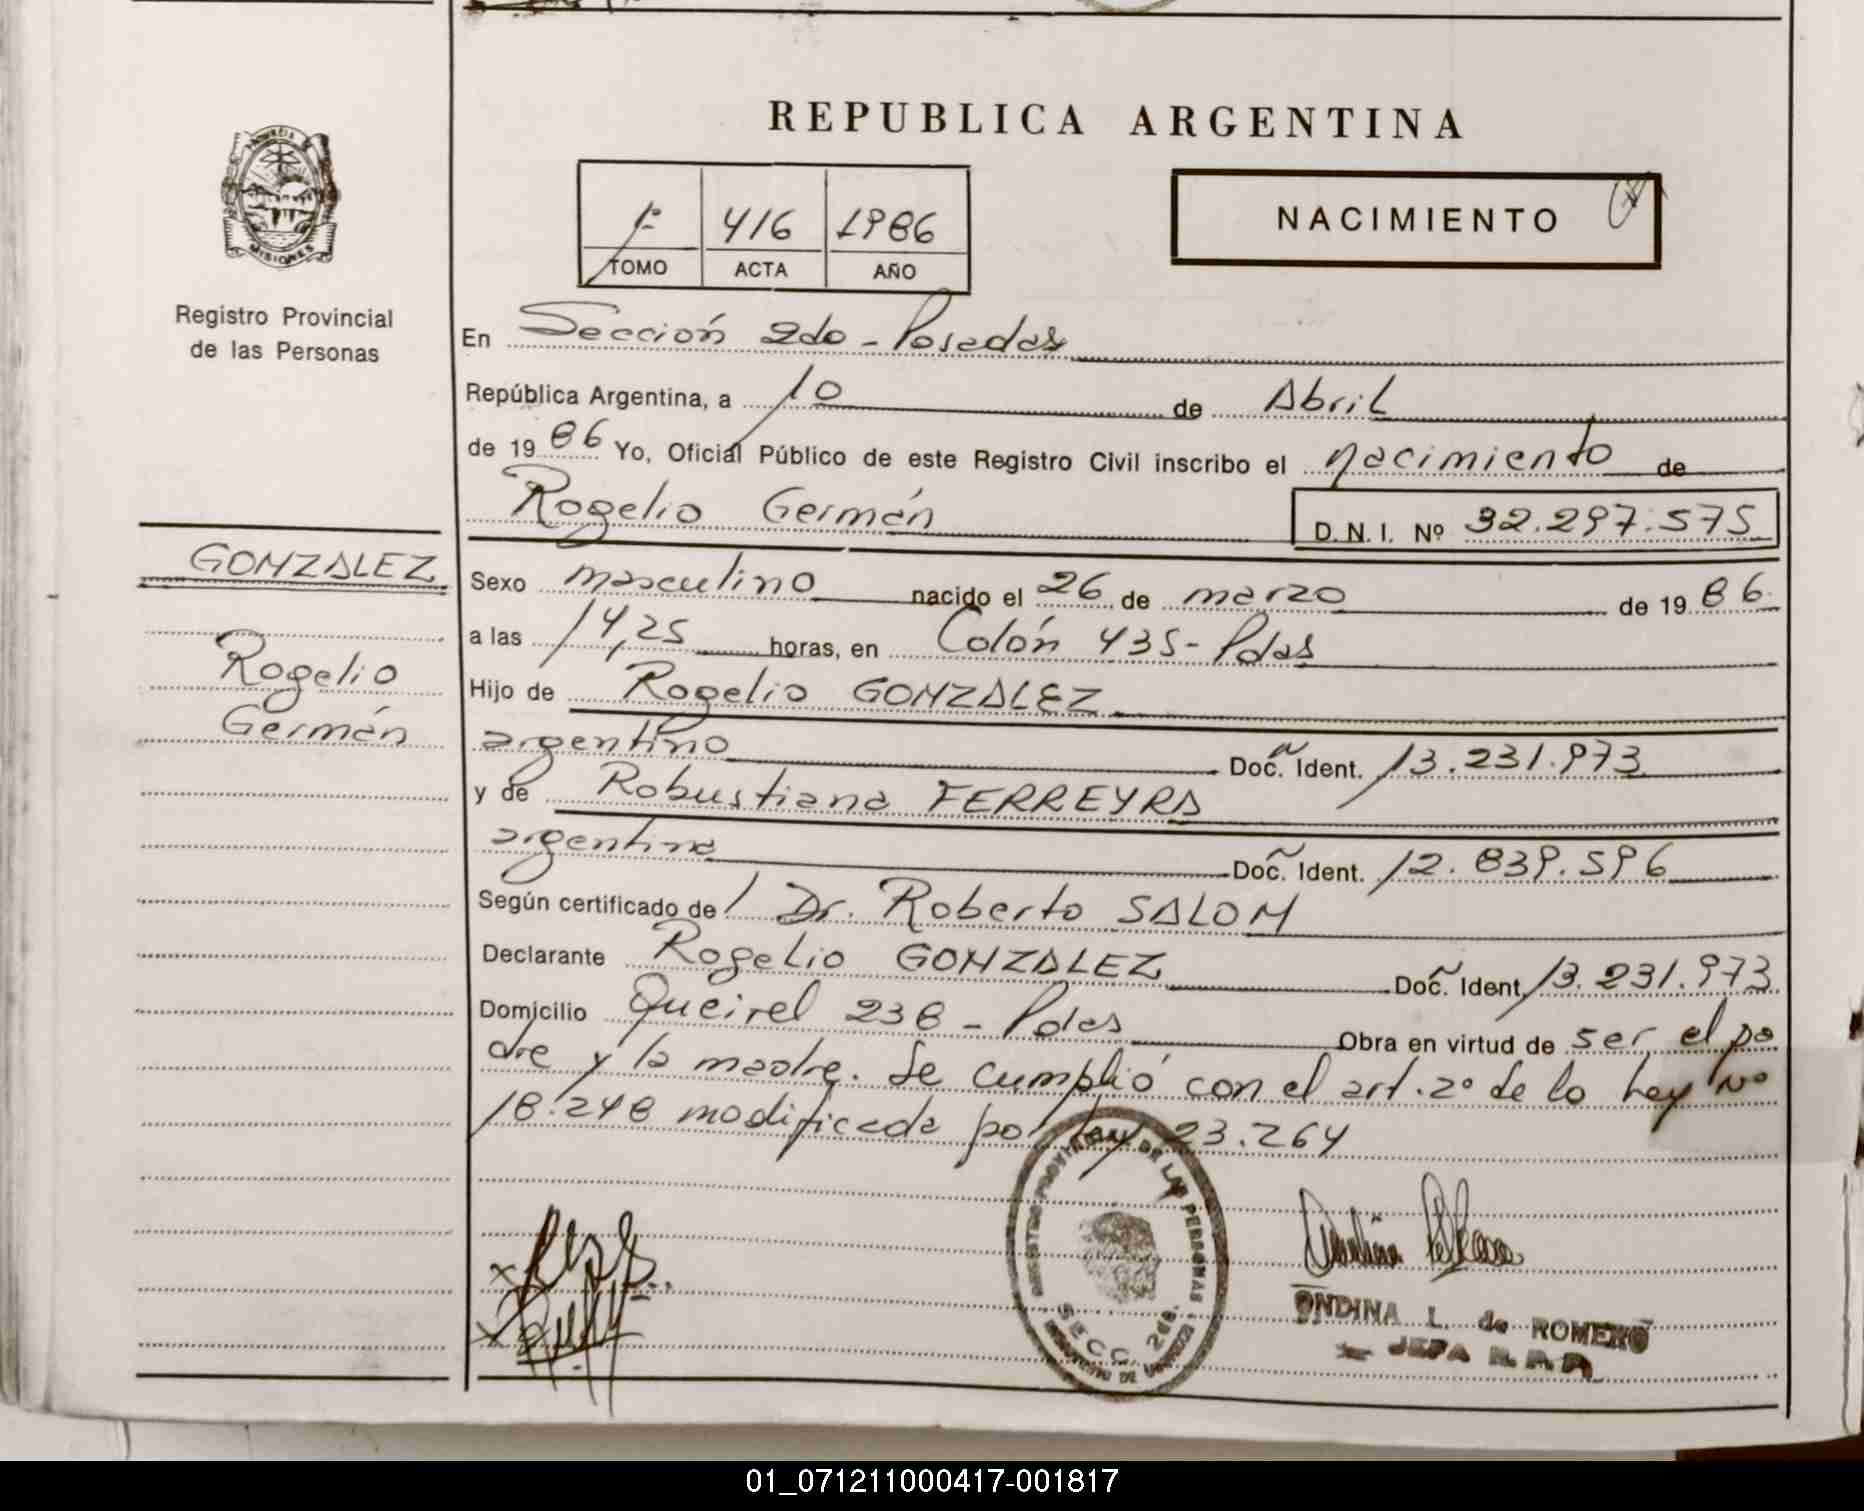 REPUBLICA ARGENTINA
PROVINCIA DE MISIONES
1º 416 1986
TOMO ACTA AÑO
NACIMIENTO
Registro Provincial
de las Personas
En Sección 2do - Posadas
República Argentina, a 10 de Abril
de 1986 Yo, Oficial Público de este Registro Civil inscribo el nacimiento de
Rogelio Germán D.N.I. Nº 32.297.575
GONZALEZ
Rogelio
Germán
Sexo masculino nacido el 26 de marzo de 1986
a las 14,25 horas, en Colón 435 - Pdas
Hijo de Rogelio GONZALEZ
argentino Doc. Ident. 13.231.973
y de Robustiana FERREYRA
argentina Doc. Ident. 12.839.596
Según certificado de Dr. Roberto SALOM
Declarante Rogelio GONZALEZ Doc. Ident. 13.231.973
Domicilio Queirel 238 - Pdas Obra en virtud de ser el pa
dre y la madre. Se cumplió con el art. 2º de la Ley Nº
18.248 modificada por Ley 23.264
REGISTRO PROVINCIAL DE LAS PERSONAS
SECC. 2da.
ONDINA L. de ROMERO
JEFA R.P.P.
01_071211000417-001817